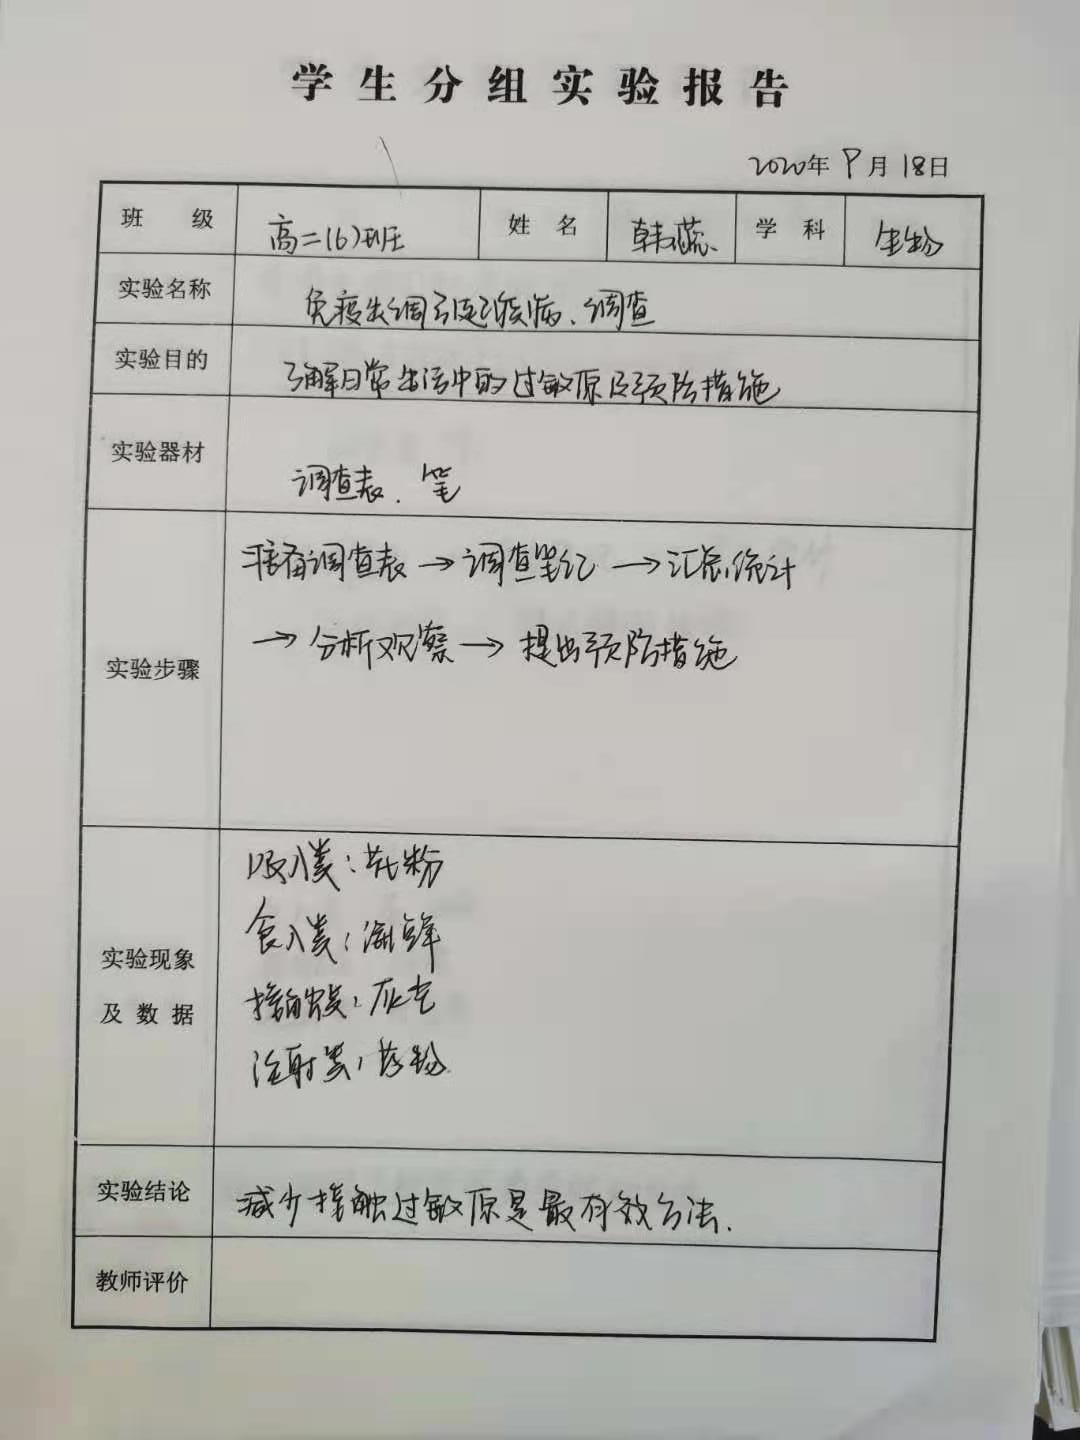 学生分组实验报告
2020年9月18日
班 级 高二(6)班 姓 名 韩蕊 学 科 生物
实验名称 免疫失调引起疾病、调查
实验目的 了解日常生活中的过敏原及预防措施
实验器材 调查表、笔
实验步骤 准备调查表→调查笔记→汇总统计
→分析观察→提出预防措施
实验现象
及数据
吸入类：花粉
食入类：海鲜
接触类：灰尘
注射类：
实验结论 减少接触过敏原是最有效方法.
教师评价